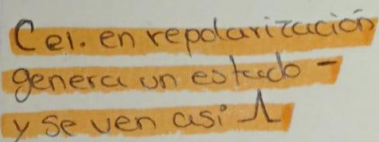 Cel. en repolarización
genera un estado -
y se ven asi